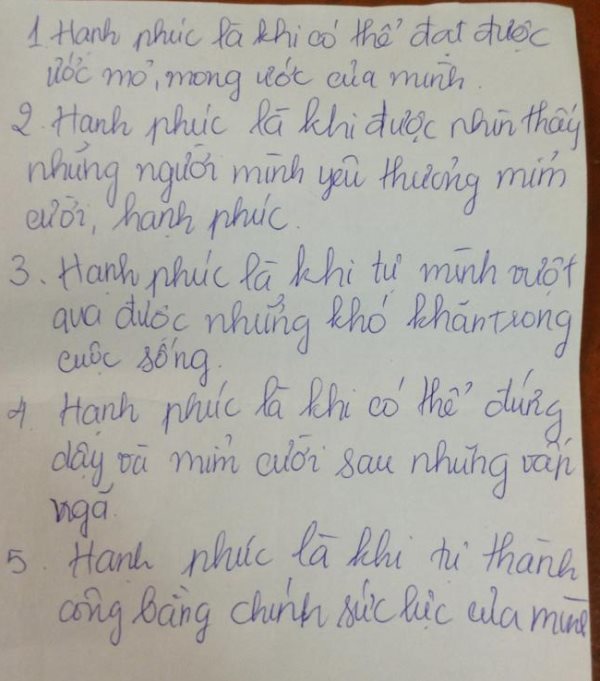 1 Hạnh phúc là khi có thể đạt được
ước mơ, mong ước của mình.
2. Hạnh phúc là khi được nhìn thấy
những người mình yêu thương mỉm
cười, hạnh phúc.
3. Hạnh phúc là khi tự mình vượt
qua được những khó khăn trong
cuộc sống.
4 Hạnh phúc là khi có thể đứng
dậy và mỉm cười sau những vấp
ngã.
5. Hạnh phúc là khi tự thành
công bằng chính sức lực của mình